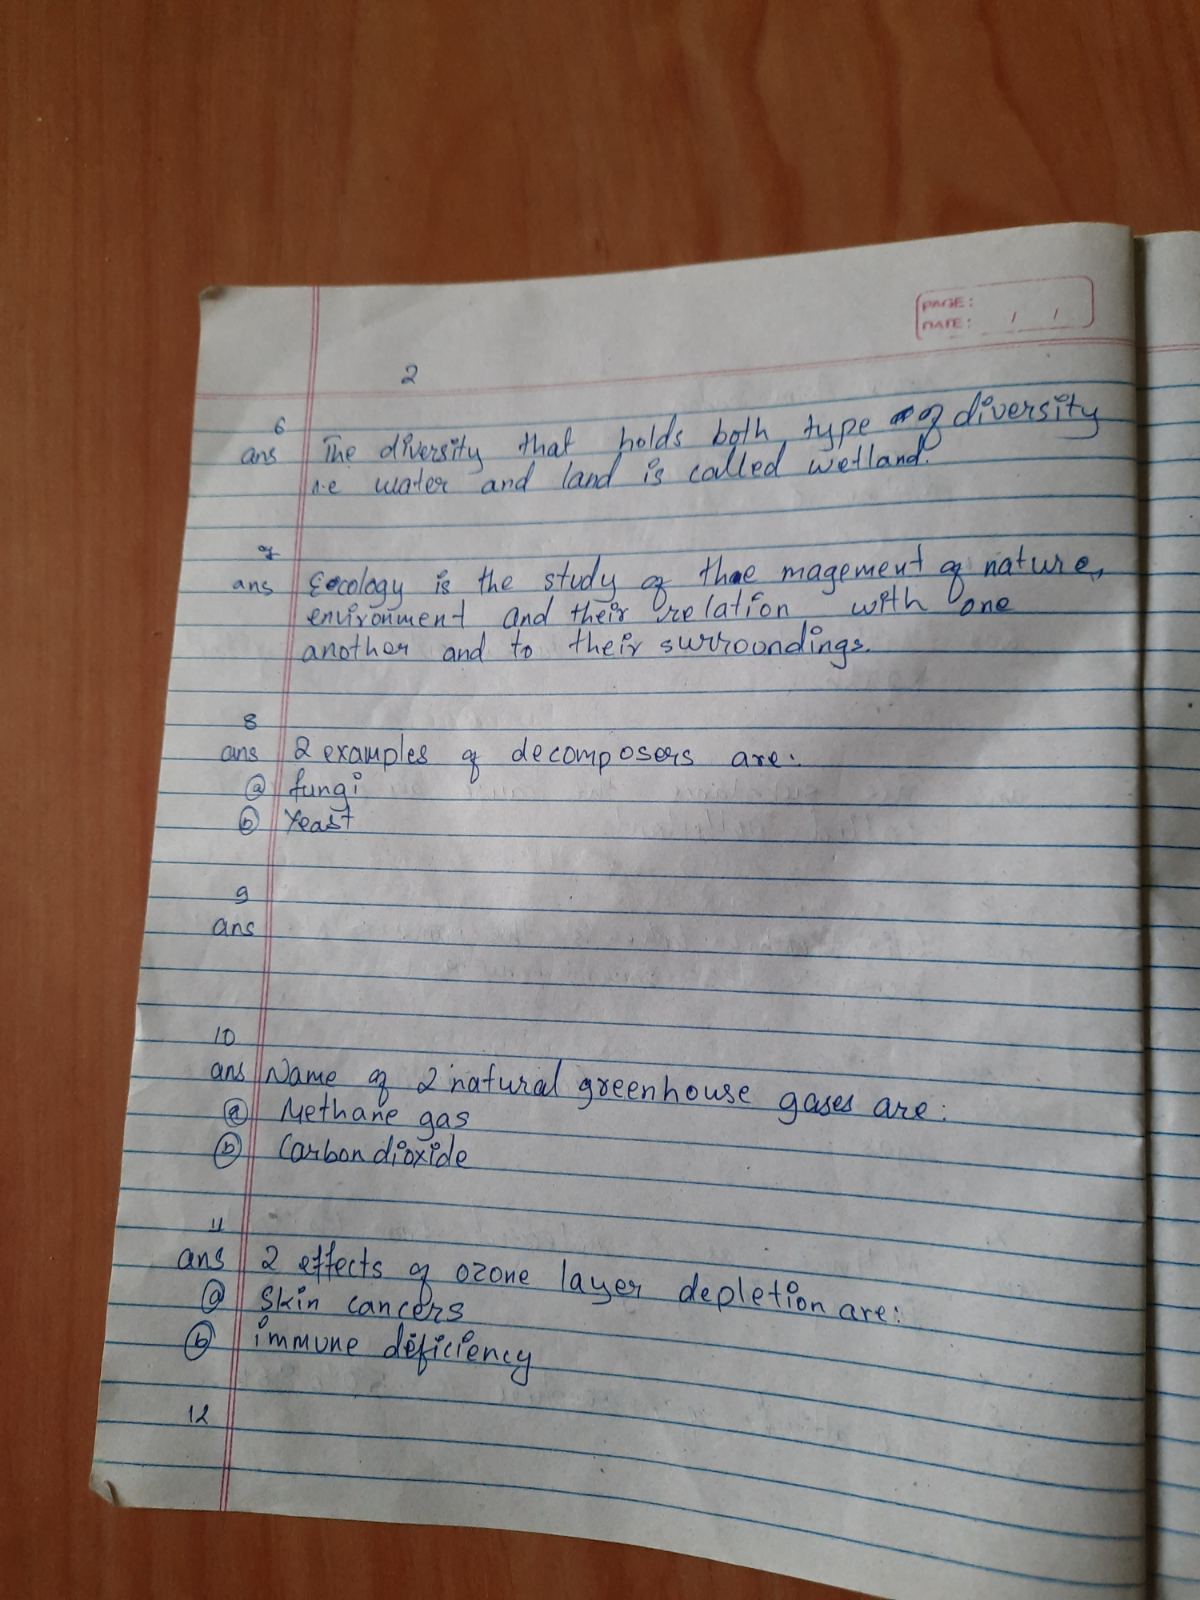 PAGE:
DATE: / /
2
6
ans The diversity that holds both type of diversity
i.e water and land is called wetland.
7
ans Eocology is the study of the magement of nature,
environment and their relation with one
another and to their surroundings.
8
ans 2 examples of decomposers are:
a fungi
b Yeast
9
ans
10
ans Name of 2 natural greenhouse gases are:
a Methane gas
b Carbon dioxide
11
ans 2 effects of ozone layer depletion are:
a Skin cancers
b immune deficiency
12